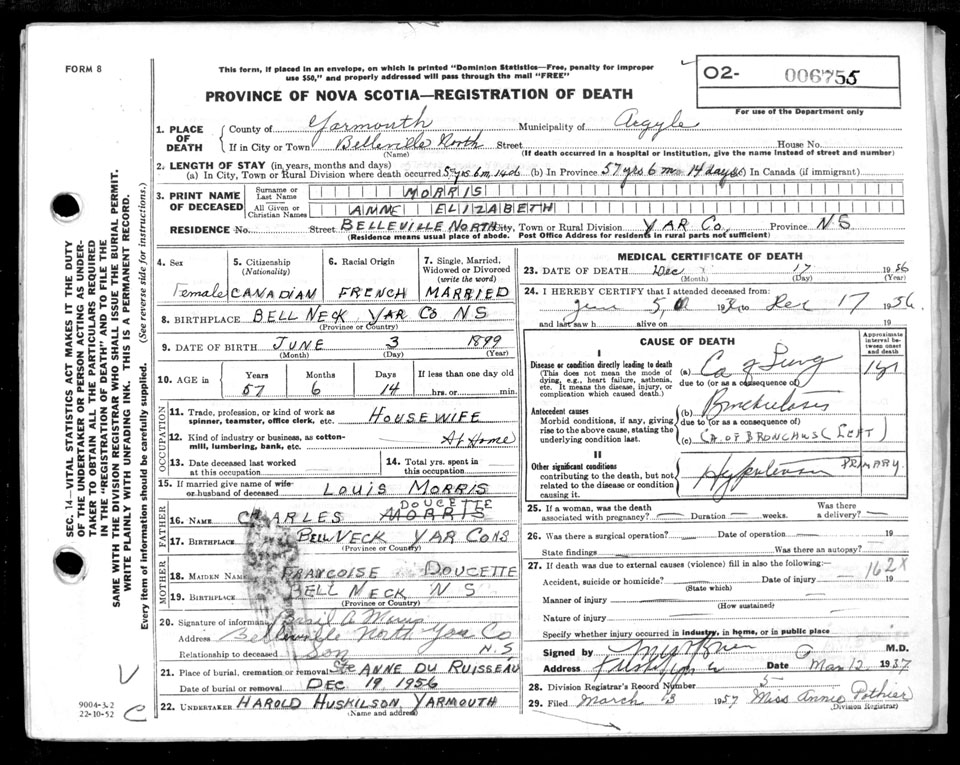 FORM 8
This form, if placed in an envelope, on which is printed "Dominion Statistics—Free, penalty for improper
use $50," and properly addressed will pass through the mail "FREE"
02- 006755
For use of the Department only
PROVINCE OF NOVA SCOTIA—REGISTRATION OF DEATH
1. PLACE OF DEATH County of Yarmouth Municipality of Argyle
If in City or Town Belleville North Street House No.
(Name) (If death occurred in a hospital or institution, give the name instead of street and number)
2. LENGTH OF STAY (in years, months and days)
(a) In City, Town or Rural Division where death occurred 57 yrs 6 m 14 d (b) In Province 57 yrs 6 m 14 days (c) In Canada (if immigrant)
3. PRINT NAME OF DECEASED Surname or Last Name MORRIS
All Given or Christian Names ANNE ELIZABETH
RESIDENCE No. Street BELLEVILLE NORTH City, Town or Rural Division YAR Co. Province NS
(Residence means usual place of abode. Post Office Address for residents in rural parts not sufficient)
4. Sex 5. Citizenship (Nationality) 6. Racial Origin 7. Single, Married, Widowed or Divorced (write the word)
Female CANADIAN FRENCH MARRIED
8. BIRTHPLACE BELL NECK YAR CO NS
(Province or Country)
9. DATE OF BIRTH JUNE 3 1899
(Month) (Day) (Year)
10. AGE in Years Months Days If less than one day old
57 6 14 hrs. or min.
OCCUPATION
11. Trade, profession, or kind of work as
spinner, teamster, office clerk, etc. HOUSEWIFE
12. Kind of industry or business, as cotton-
mill, lumbering, bank, etc. At Home
13. Date deceased last worked
at this occupation
14. Total yrs. spent in
this occupation
15. If married give name of wife
or husband of deceased LOUIS MORRIS
FATHER
DOUCETTE
16. NAME CHARLES MORRIS
17. BIRTHPLACE BELL NECK YAR CO NS
(Province or Country)
MOTHER
18. MAIDEN NAME FRANCOISE DOUCETTE
19. BIRTHPLACE BELL NECK NS
(Province or Country)
20. Signature of informant Basil A Morris
Address Belleville North Yar Co
N.S
Relationship to deceased Son
21. Place of burial, cremation or removal Ste ANNE DU RUISSEAU
Date of burial or removal DEC 19 1956
22. UNDERTAKER HAROLD HUSKILSON YARMOUTH
(Name and address)
MEDICAL CERTIFICATE OF DEATH
23. DATE OF DEATH Dec 17 1956
(Month) (Day) (Year)
24. I HEREBY CERTIFY that I attended deceased from:
to Dec 17 1956
and last saw h alive on 19
CAUSE OF DEATH
Approximate interval between onset and death
I
Disease or condition directly leading to death
(This does not mean the mode of
dying, e.g., heart failure, asthenia,
etc. It means the disease, injury, or
complication which caused death.)
(a) Ca of Lung 1 yr
due to (or as a consequence of)
Antecedent causes
Morbid conditions, if any, giving
rise to the above cause, stating the
underlying condition last.
(b)
due to (or as a consequence of)
(c) CA. OF BRONCHUS (LEFT)
PRIMARY.
II
Other significant conditions
contributing to the death, but not
related to the disease or condition
causing it.
Hypertension
25. If a woman, was the death
associated with pregnancy? Duration weeks. Was there a delivery?
26. Was there a surgical operation? Date of operation 19
State findings Was there an autopsy?
27. If death was due to external causes (violence) fill in also the following:—
162X
Accident, suicide or homicide? Date of injury 19
(State which)
Manner of injury
(How sustained)
Nature of injury
Specify whether injury occurred in industry, in home, or in public place
Signed by M.D.
Address Date Mar 12 1957
28. Division Registrar's Record Number 5
29. Filed March 13 1957 Miss Annie Pothier
(Division Registrar)
SEC. 14—VITAL STATISTICS ACT MAKES IT THE DUTY
OF THE UNDERTAKER OR PERSON ACTING AS UNDER-
TAKER TO OBTAIN ALL THE PARTICULARS REQUIRED
IN THE "REGISTRATION OF DEATH" AND TO FILE THE
SAME WITH THE DIVISION REGISTRAR WHO SHALL ISSUE THE BURIAL PERMIT.
WRITE PLAINLY WITH UNFADING INK. THIS IS A PERMANENT RECORD.
Every item of information should be carefully supplied. (See reverse side for instructions.)
9004-3.2
22-10-52
C